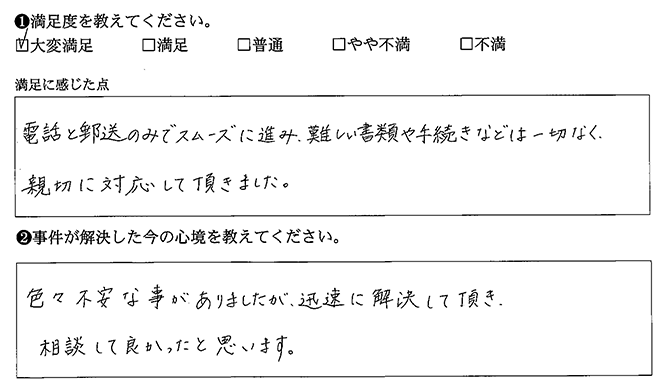 ❶満足度を教えてください。
☑大変満足 □満足 □普通 □やや不満 □不満
満足に感じた点
電話と郵送のみでスムーズに進み、難しい書類や手続きなどは一切なく、
親切に対応して頂きました。
❷事件が解決した今の心境を教えてください。
色々不安な事がありましたが、迅速に解決して頂き、
相談して良かったと思います。